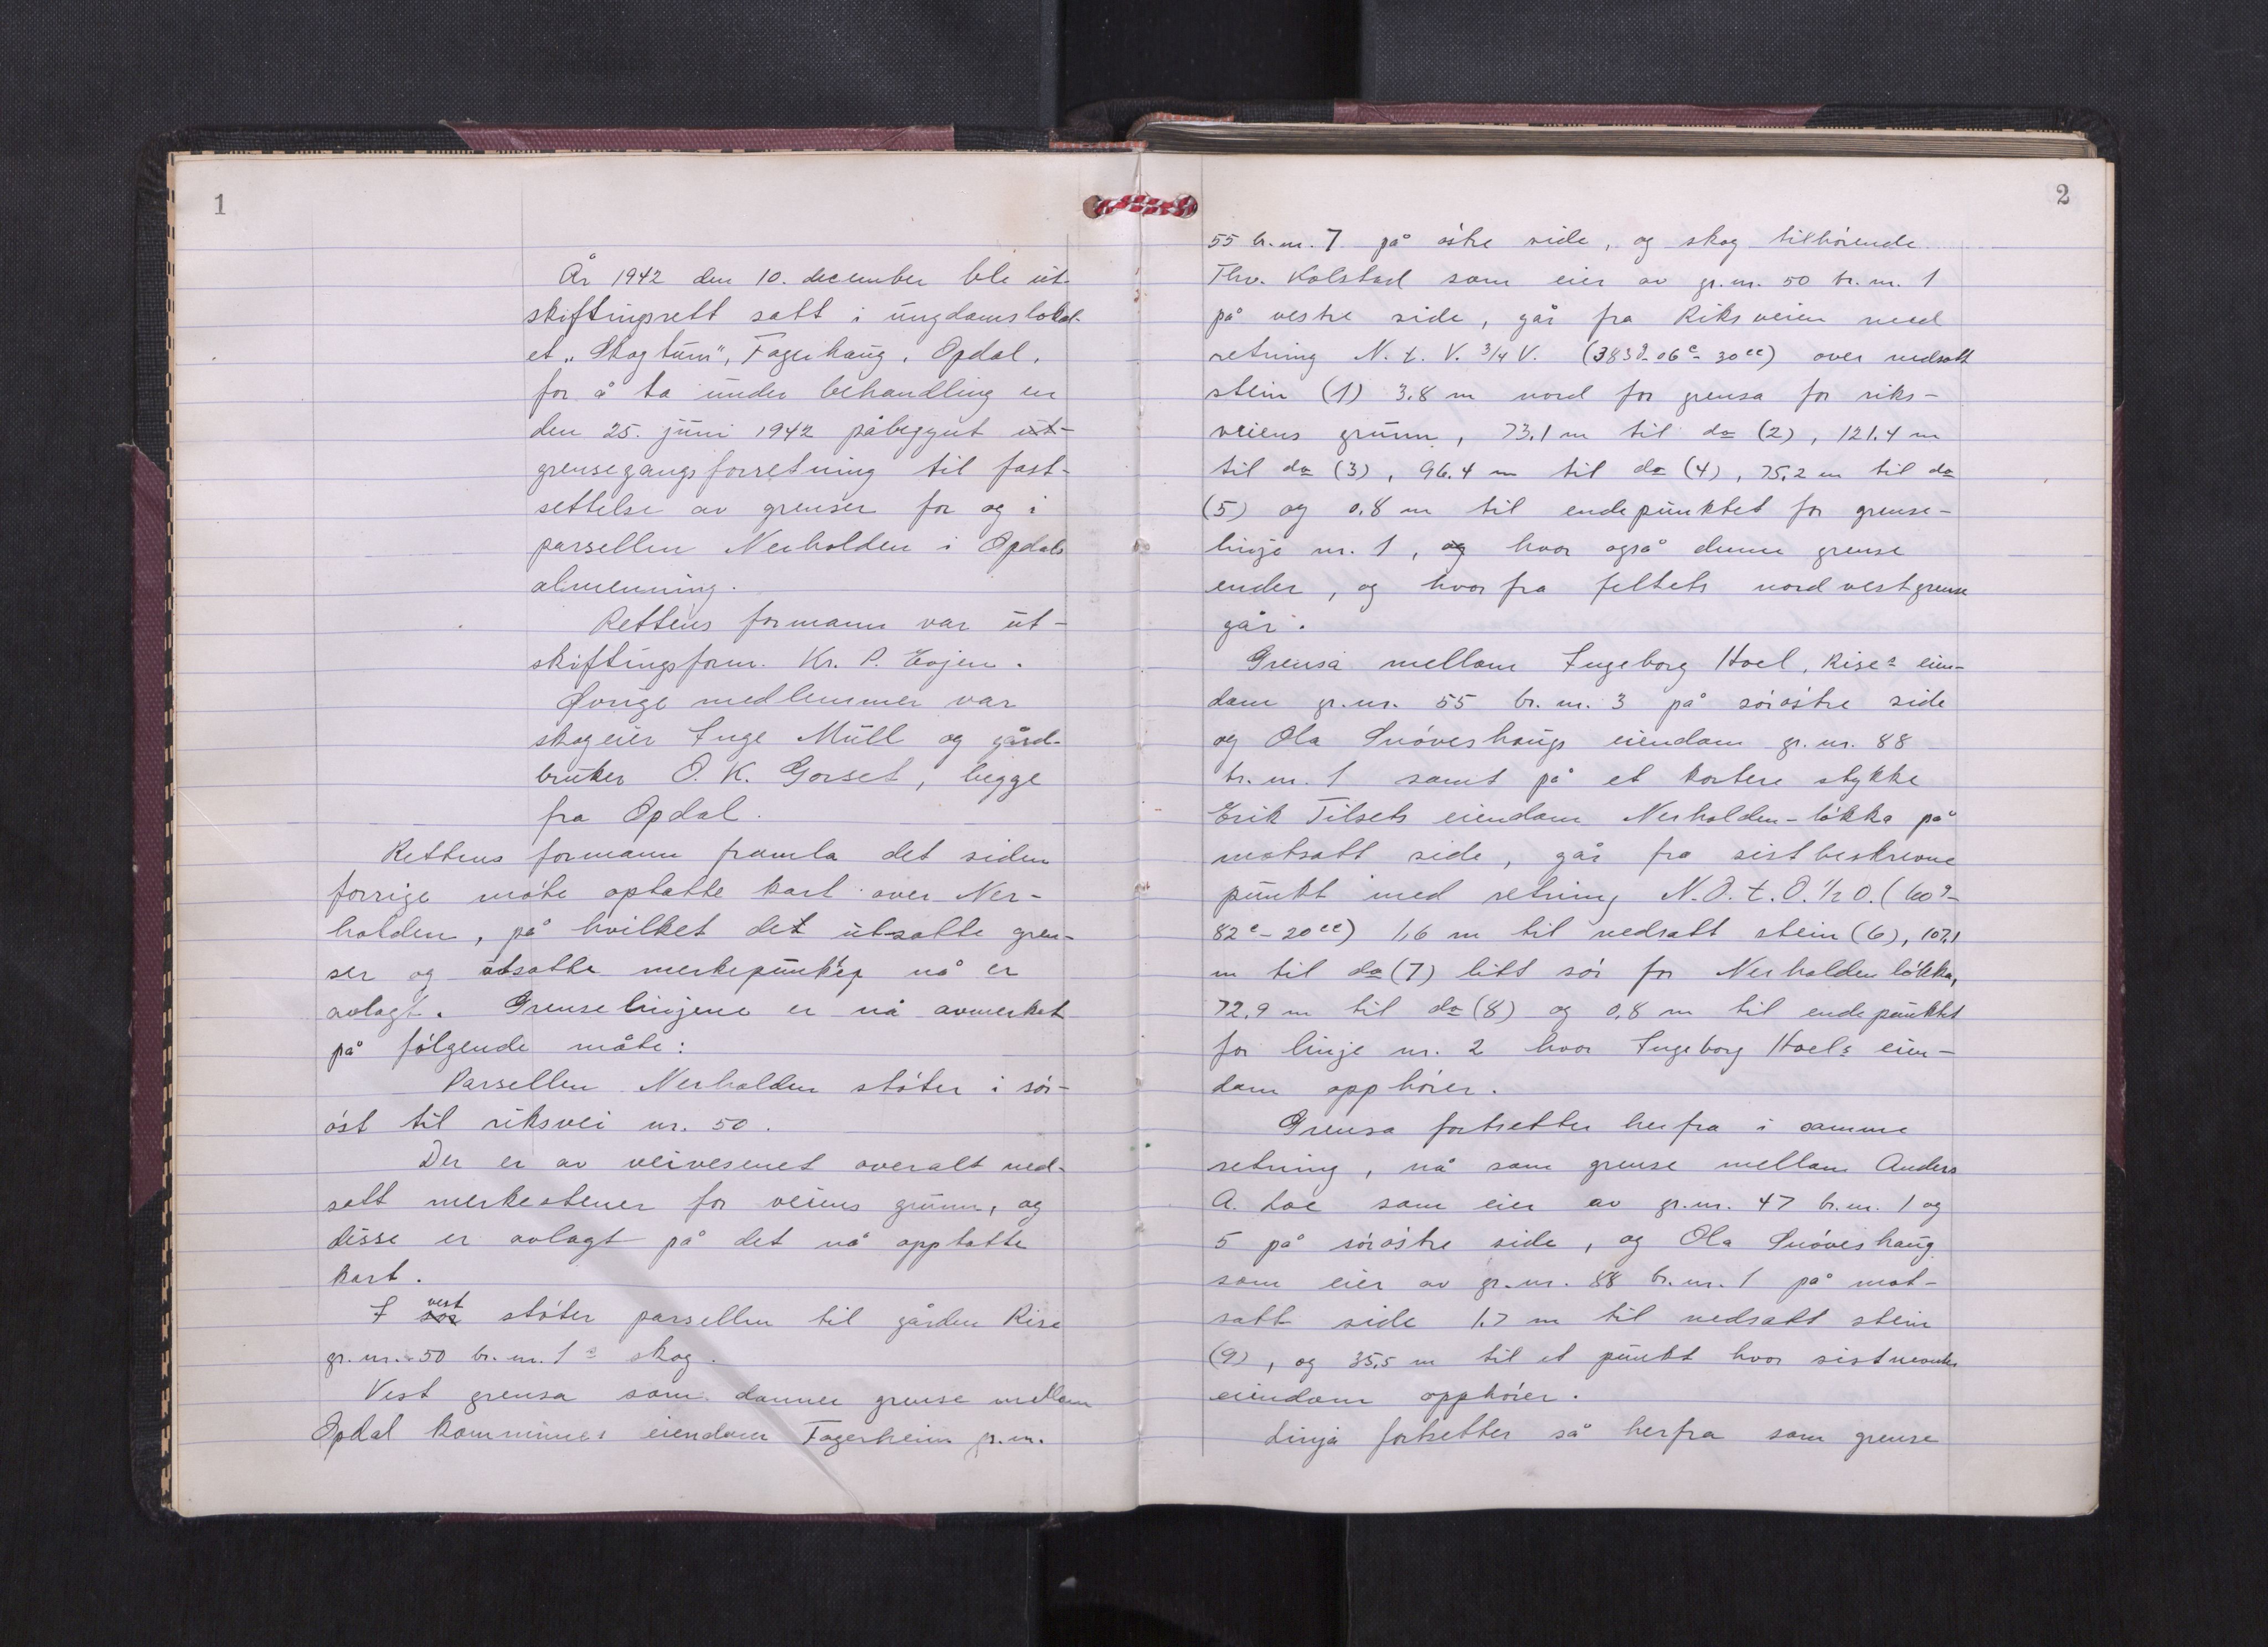 1
År 1942 den 10. december ble ut-
skiftingsrett satt i ungdomslokal-
et „Skogtun", Fagerhaug, Opdal,
for å ta under behandling en
den 25. juni 1942 påbegynt ut-
grensegangsforretning til fast-
settelse av grenser for og i
parsellen Nerholden i Opdals
almenning.
Rettens formann var ut-
skiftingsform. Kr. P. Evjen.
Øvrige medlemmer var
skogeier Inge Müll og gård-
bruker O. K. Gorset, begge
fra Opdal.
Rettens formann framla det siden
forrige møte optatte kart over Ner-
holden, på hvilket det utsatte gren-
ser og utsatte merkepunkter nå er
avlagt. Grenselinjene er nå avmerket
på følgende måte:
Parsellen Nerholden støter i sør-
øst til riksvei nr. 50.
Der er av veivesenet overalt ned-
satt merkestener for veiens grunn, og
disse er avlagt på det nå opptatte
kart.
I sør vest støter parsellen til gården Rise
gr.nr. 50 br.nr. 1s skog.
Vest grensa som danner grense mellem
Opdal kommunes eiendom Fagerheim gr.nr.
2
55 br.nr. 7 på østre side, og skog tilhørende
Thv. Kolstad som eier av gr.nr. 50 br.nr. 1
på vestre side, går fra Riksveien med
retning N. t. V. 3/4 V. (383g-06c-30cc) over nedsatt
stein (1) 3,8 m nord for grensa for riks-
veiens grunn, 73,1 m til do (2), 121.4 m
til do (3), 96.4 m til do (4), 75,2 m til do
(5) og 0,8 m til endepunktet for grense-
linje nr. 1, og hvor også denne grense
ender, og hvorfra feltets nordvestgrense
går.
Grensa mellom Ingeborg Hoel, Rises eien-
dom gr.nr. 55 br.nr. 3 på sørøstre side
og Ola Snøveshaugs eiendom gr.nr. 88
br.nr. 1 samt på et kortere stykke
Erik Tilsets eiendom Nerholden-løkka på
motsatt side, går fra sistbeskrevne
punkt med retning N.O.t.O.1/2 O. (60g-
82c-20cc) 1,6 m til nedsatt stein (6), 107,1
m til do (7) litt sør for Nerholdenløkka,
72,9 m til do (8) og 0,8 m til endepunktet
for linje nr. 2 hvor Ingeborg Hoels eien-
dom opphører.
Grensa fortsetter herfra i samme
retning, nå som grense mellom Anders
A. Loe som eier av gr.nr. 47 br.nr. 1 og
5 på sørøstre side, og Ola Snøveshaug
som eier av gr.nr. 88 br.nr. 1 på mot-
satt side 1.7 m til nedsatt stein
(9), og 35,5 m til et punkt hvor sistnevnte
eiendom opphører.
Linja fortsetter så herfra som grense